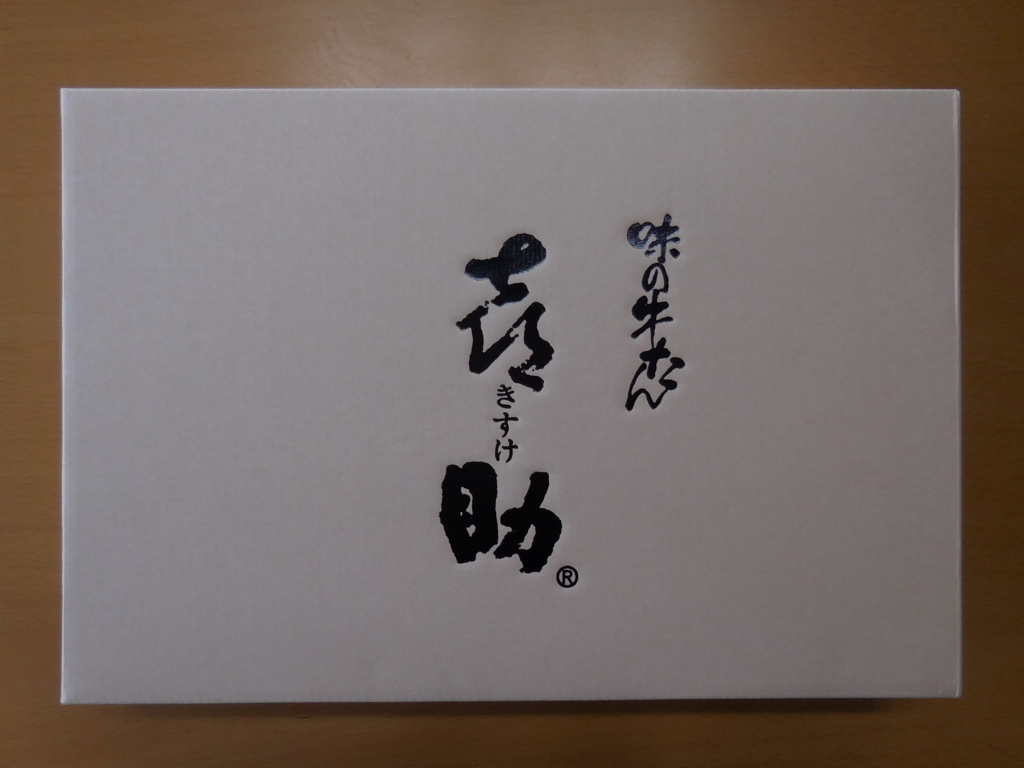 味の牛たん
喜助
きすけ
®